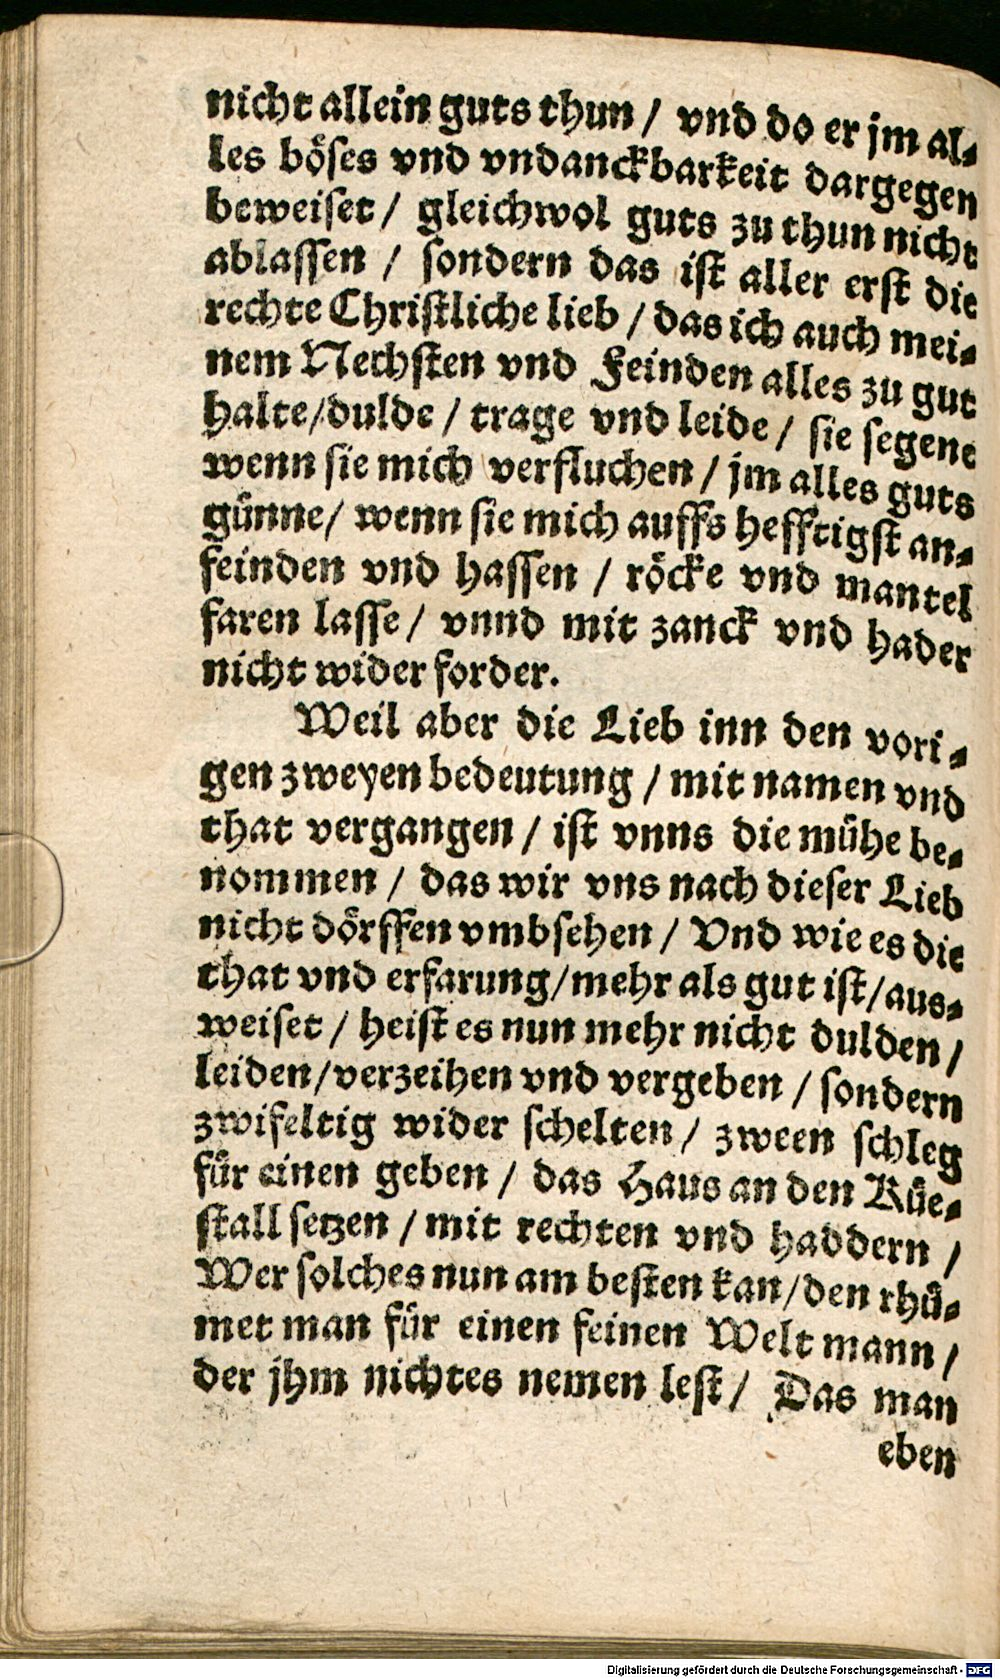 nicht allein guts thun / vnd do er jm al-
les böses vnd vndanckbarkeit dargegen
beweiset / gleichwol guts zu thun nicht
ablassen / sondern das ist aller erst die
rechte Christliche lieb / das ich auch mei-
nem Nechsten vnd Feinden alles zu gut
halte/dulde / trage vnd leide / sie segene
wenn sie mich verfluchen / jm alles guts
günne/ wenn sie mich auffs hefftigst an-
feinden vnd hassen / röcke vnd mantel
faren lasse / vnnd mit zanck vnd hader
nicht wider forder.
Weil aber die Lieb inn den vori-
gen zweyen bedeutung / mit namen vnd
that vergangen / ist vnns die mühe be-
nommen / das wir vns nach dieser Lieb
nicht dörffen vmbsehen / Vnd wie es die
that vnd erfarung/mehr als gut ist/aus-
weiset / heist es nun mehr nicht dulden /
leiden/verzeihen vnd vergeben / sondern
zwifeltig wider schelten / zween schleg
für einen geben / das Haus an den Küe-
stall setzen / mit rechten vnd haddern /
Wer solches nun am besten kan/den rhü-
met man für einen feinen Welt mann /
der jhm nichtes nemen lest / Das man
eben
Digitalisierung gefördert durch die Deutsche Forschungsgemeinschaft - DFG